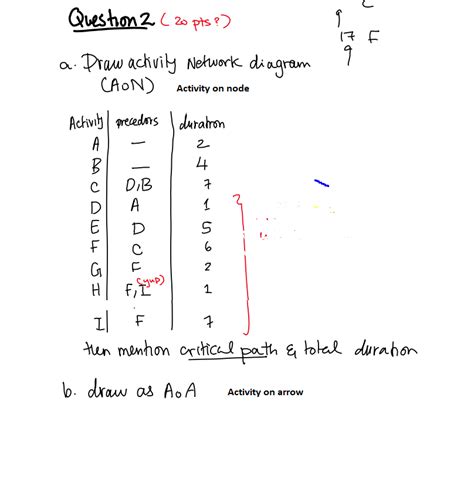 Question 2 ( 20 pts ? )
17 F
9
a. Draw activity Network diagram
(AoN) Activity on node
Activity precedors duration
A — 2
B — 4
C D,B 7
D A 1
E D 5
F C 6
G F 2
(yup)
H F, I 1
I F 7
then mention critical path & total duration
b. draw as AoA Activity on arrow